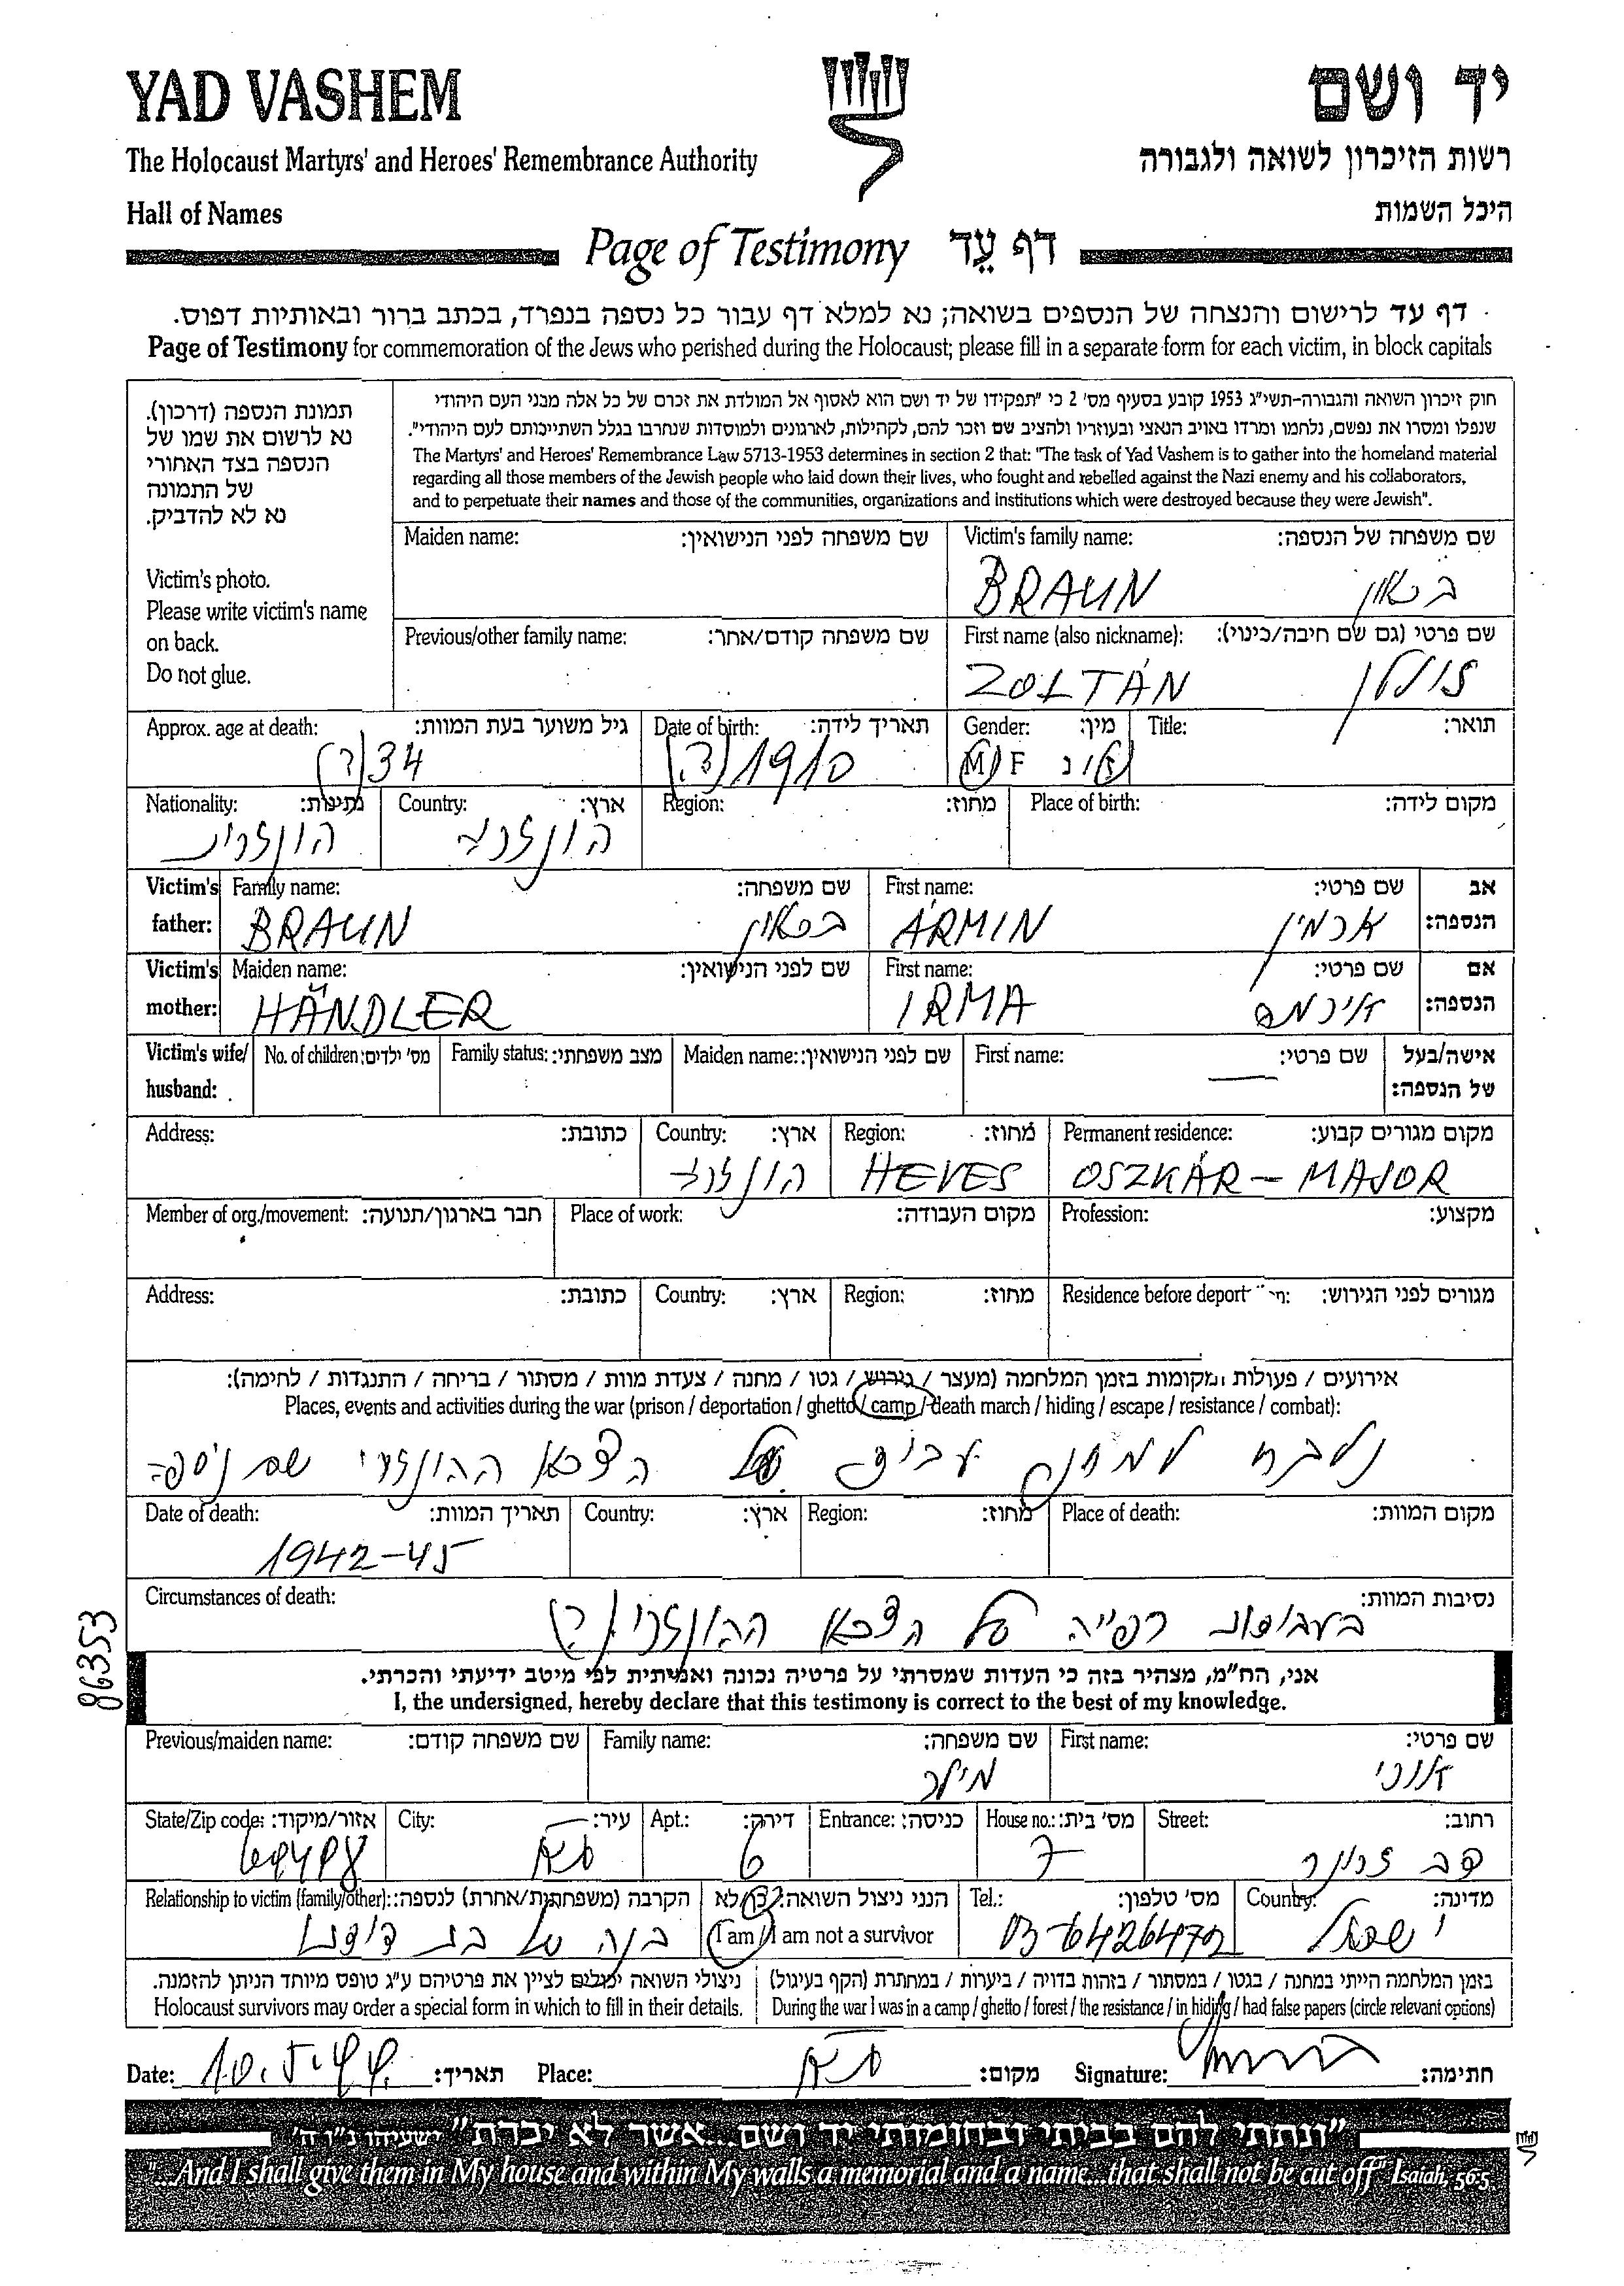 YAD VASHEM
יד ושם
The Holocaust Martyrs' and Heroes' Remembrance Authority
רשות הזיכרון לשואה ולגבורה
Hall of Names
היכל השמות
Page of Testimony דף עֵד
דף עד לרישום והנצחה של הנספים בשואה; נא למלא דף עבור כל נספה בנפרד, בכתב ברור ובאותיות דפוס.
Page of Testimony for commemoration of the Jews who perished during the Holocaust; please fill in a separate form for each victim, in block capitals
תמונת הנספה (דרכון).
נא לרשום את שמו של
הנספה בצד האחורי
של התמונה
נא לא להדביק.
Victim's photo.
Please write victim's name
on back.
Do not glue.
חוק זיכרון השואה והגבורה-תשי"ג 1953 קובע בסעיף מס' 2 כי "תפקידו של יד ושם הוא לאסוף אל המולדת את זכרם של כל אלה מבני העם היהודי
שנפלו ומסרו את נפשם, נלחמו ומרדו באויב הנאצי ובעוזריו ולהציב שם וזכר להם, לקהילות, לארגונים ולמוסדות שנחרבו בגלל השתייכותם לעם היהודי".
The Martyrs' and Heroes' Remembrance Law 5713-1953 determines in section 2 that: "The task of Yad Vashem is to gather into the homeland material
regarding all those members of the Jewish people who laid down their lives, who fought and rebelled against the Nazi enemy and his collaborators,
and to perpetuate their names and those of the communities, organizations and institutions which were destroyed because they were Jewish".
Maiden name: שם משפחה לפני הנישואין: Victim's family name: שם משפחה של הנספה:
BRAUN בראון
Previous/other family name: שם משפחה קודם/אחר: First name (also nickname): שם פרטי (גם שם חיבה/כינוי):
ZOLTÁN זולטן
Approx. age at death: גיל משוער בעת המוות: Date of birth: תאריך לידה: Gender: מין: Title: תואר:
34 (?) 1910 (?) M / F ז / נ
Nationality: נתינות: Country: ארץ: Region: מחוז: Place of birth: מקום לידה:
הונגרית הונגריה
Victim's father: Family name: שם משפחה: First name: שם פרטי: אב הנספה:
BRAUN בראון ÁRMIN ארמין
Victim's mother: Maiden name: שם לפני הנישואין: First name: שם פרטי: אם הנספה:
HÄNDLER IRMA אירמה
Victim's wife/ husband: No. of children: מס' ילדים: Family status: מצב משפחתי: Maiden name: שם לפני הנישואין: First name: שם פרטי: אישה/בעל של הנספה:
Address: כתובת: Country: ארץ: Region: מחוז: Permanent residence: מקום מגורים קבוע:
הונגריה HEVES OSZKÁR – MAJOR
Member of org./movement: חבר בארגון/תנועה: Place of work: מקום העבודה: Profession: מקצוע:
Address: כתובת: Country: ארץ: Region: מחוז: Residence before deport מגורים לפני הגירוש:
אירועים / פעולות ומקומות בזמן המלחמה (מעצר / גירוש / גטו / מחנה / צעדת מוות / מסתור / בריחה / התנגדות / לחימה):
Places, events and activities during the war (prison / deportation / ghetto / camp / death march / hiding / escape / resistance / combat):
נלקח למחנה עבודה של הצבא ההונגרי שם נספה
Date of death: תאריך המוות: Country: ארץ: Region: מחוז: Place of death: מקום המוות:
1942-45
Circumstances of death: נסיבות המוות:
בעבודת כפייה של הצבא ההונגרי (?)
86353
אני, הח"מ, מצהיר בזה כי העדות שמסרתי על פרטיה נכונה ואמיתית לפי מיטב ידיעתי והכרתי.
I, the undersigned, hereby declare that this testimony is correct to the best of my knowledge.
Previous/maiden name: שם משפחה קודם: Family name: שם משפחה: First name: שם פרטי:
מילר
State/Zip code: אזור/מיקוד: City: עיר: Apt.: דירה: Entrance: כניסה: House no.: מס' בית: Street: רחוב:
ת"א 6 7
Relationship to victim (family/other): הקרבה (משפחתית/אחרת) לנספה: הנני ניצול השואה: כן/לא Tel.: מס' טלפון: Country: מדינה:
בנה של בת דודתו I am / I am not a survivor 03-6426472 ישראל
ניצולי השואה יכולים לציין את פרטיהם ע"ג טופס מיוחד הניתן להזמנה.
Holocaust survivors may order a special form in which to fill in their details.
בזמן המלחמה הייתי במחנה / בגטו / במסתור / בזהות בדויה / ביערות / במחתרת (הקף בעיגול)
During the war I was in a camp / ghetto / forest / the resistance / in hiding / had false papers (circle relevant options)
Date: 10.5.99 תאריך: Place: ת"א מקום: Signature: חתימה:
"ונתתי להם בביתי ובחומותי יד ושם...אשר לא יכרת" ישעיהו נ"ו ה'
"...And I shall give them in My house and within My walls a memorial and a name...that shall not be cut off" Isaiah, 56:5.